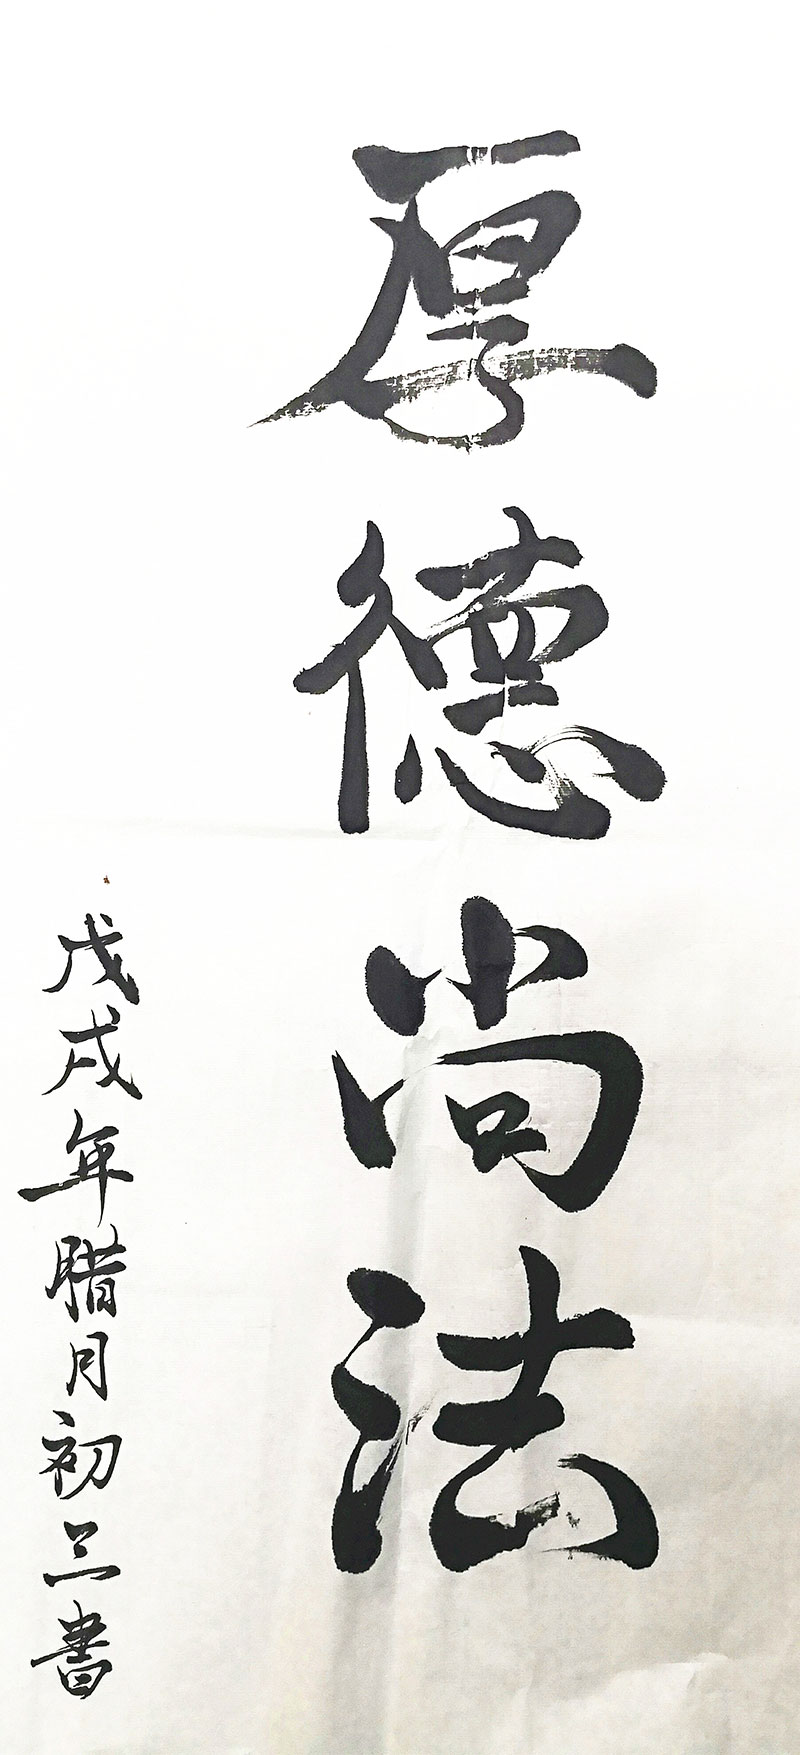 厚德尚法
戊戌年腊月初三書